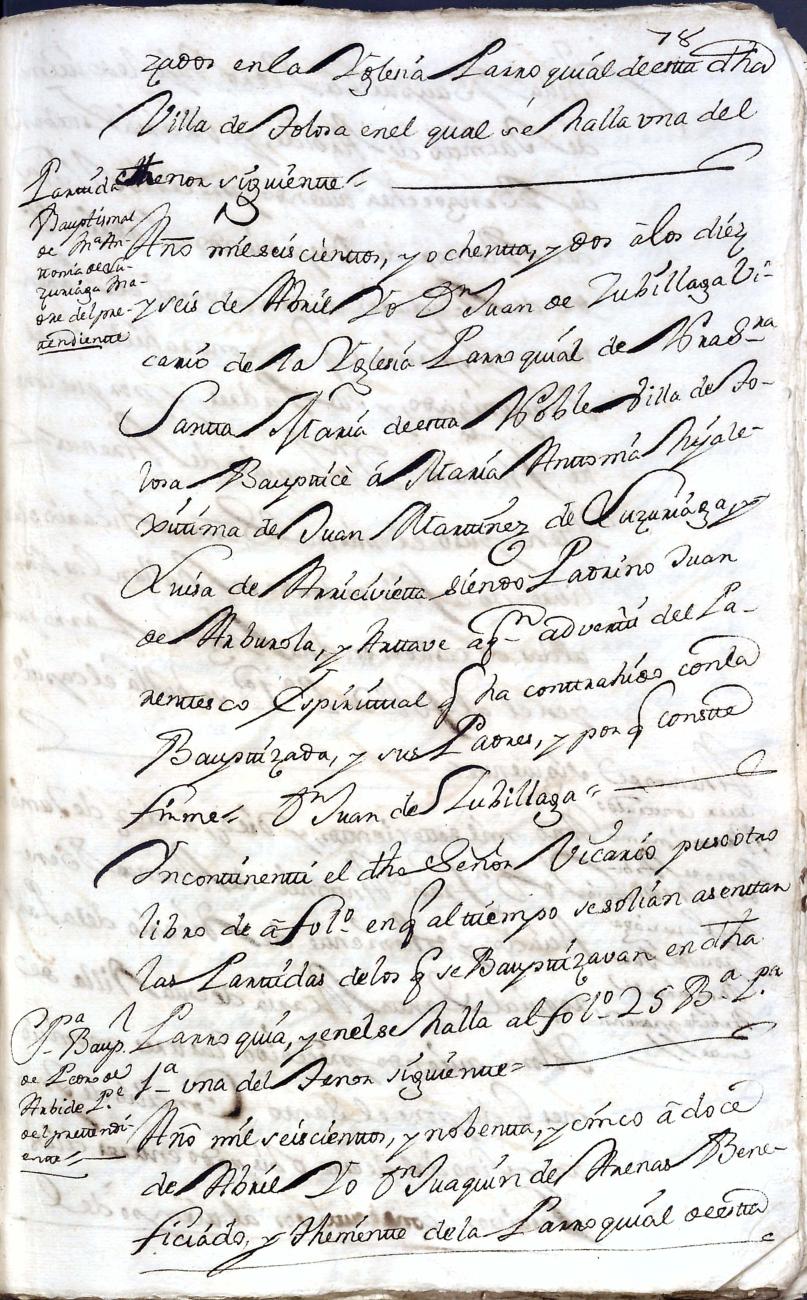 78
zados en la Yglesia Parroquial de esta dha
Villa de Tolosa en el qual se halla una del
thenor siguiente =
Partida
Bauptismal
de Mª An-
tonia de Lu-
zuriaga Ma-
dre del pre-
tendiente
Año mil seiscientos, y ochenta, y dos â los diez
y seis de Abril Yo Dn Juan de Zubillaga Vi-
cario de la Yglesia Parroquial de Nra Sra
Santa Maria de esta Noble Villa de To-
losa Baupticè á Maria Antonia hija le-
xitima de Juan Martinez de Luzuriaga, y
Luisa de Arricivieta siendo Padrino Juan
de Arburola, y Arttave aqn advertí del Pa-
rentesco Espiritual q ha contrahido con la
Bauptizada, y sus Padres, y por q conste
firme = Dn Juan de Zubillaga =
Yncontinenti el dho Señor Vicario puso otro
libro de â folº en q al tiempo se solian asentar
las Partidas de los q se Bauptizavan en dha
Parroquia, y en el se halla al folº 25 Bª Pª
1ª una del Tenor siguiente =
Pª Baup.l
de Pedro de
Arbide P.e
del pretendi-
ente =
Año mil seiscientos, y nobenta, y cinco â doce
de Abril Yo Dn Juaquin de Arenas Bene-
ficiado, y theniente de la Parroquial de esta